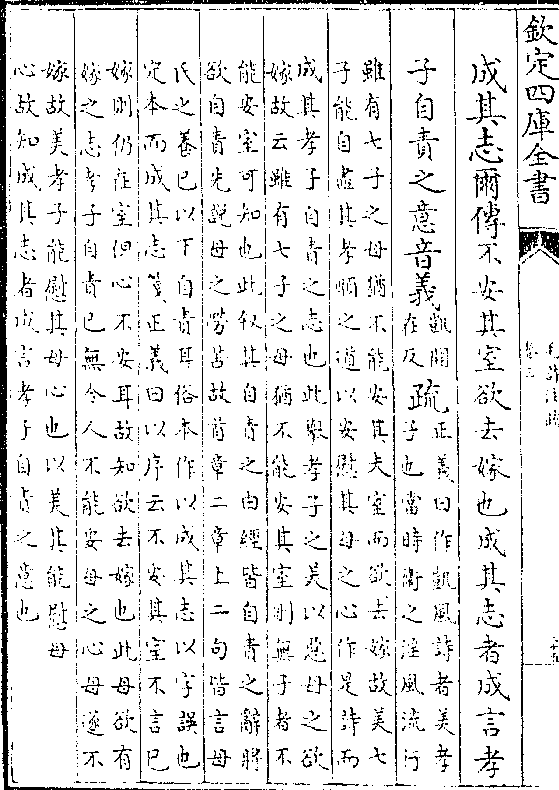 欽定四庫全書
毛詩注疏
成其志爾傳不安其室欲去嫁也成其志者成言孝
子自責之意音義觀開在反疏正義曰作凱風詩者美孝子也當時衛之淫風流行
雖有七子之母猶不能安其夫室而欲去嫁故美七
子能自盡其孝順之道以安慰其母之心作是詩而
成其孝子自責之志也此舉孝子之美以惡母之欲
嫁故云雖有七子之母猶不能安其室則無子者不
能安室可知也此叙其自責之由經皆自責之辭將
欲自責先說母之勞苦故首章二章上二句皆言母
氏之養已以下自責耳俗本作以成其志以字誤也
定本而成其志箋正義曰以序云不安其室不言已
嫁則仍在室但心不安耳故知欲去嫁也此母欲有
嫁之志孝子自責已無令人不能安母之心母遂不
嫁故美孝子能慰其母心也以美其能慰母
心故知成其志者成言孝子自責之意也